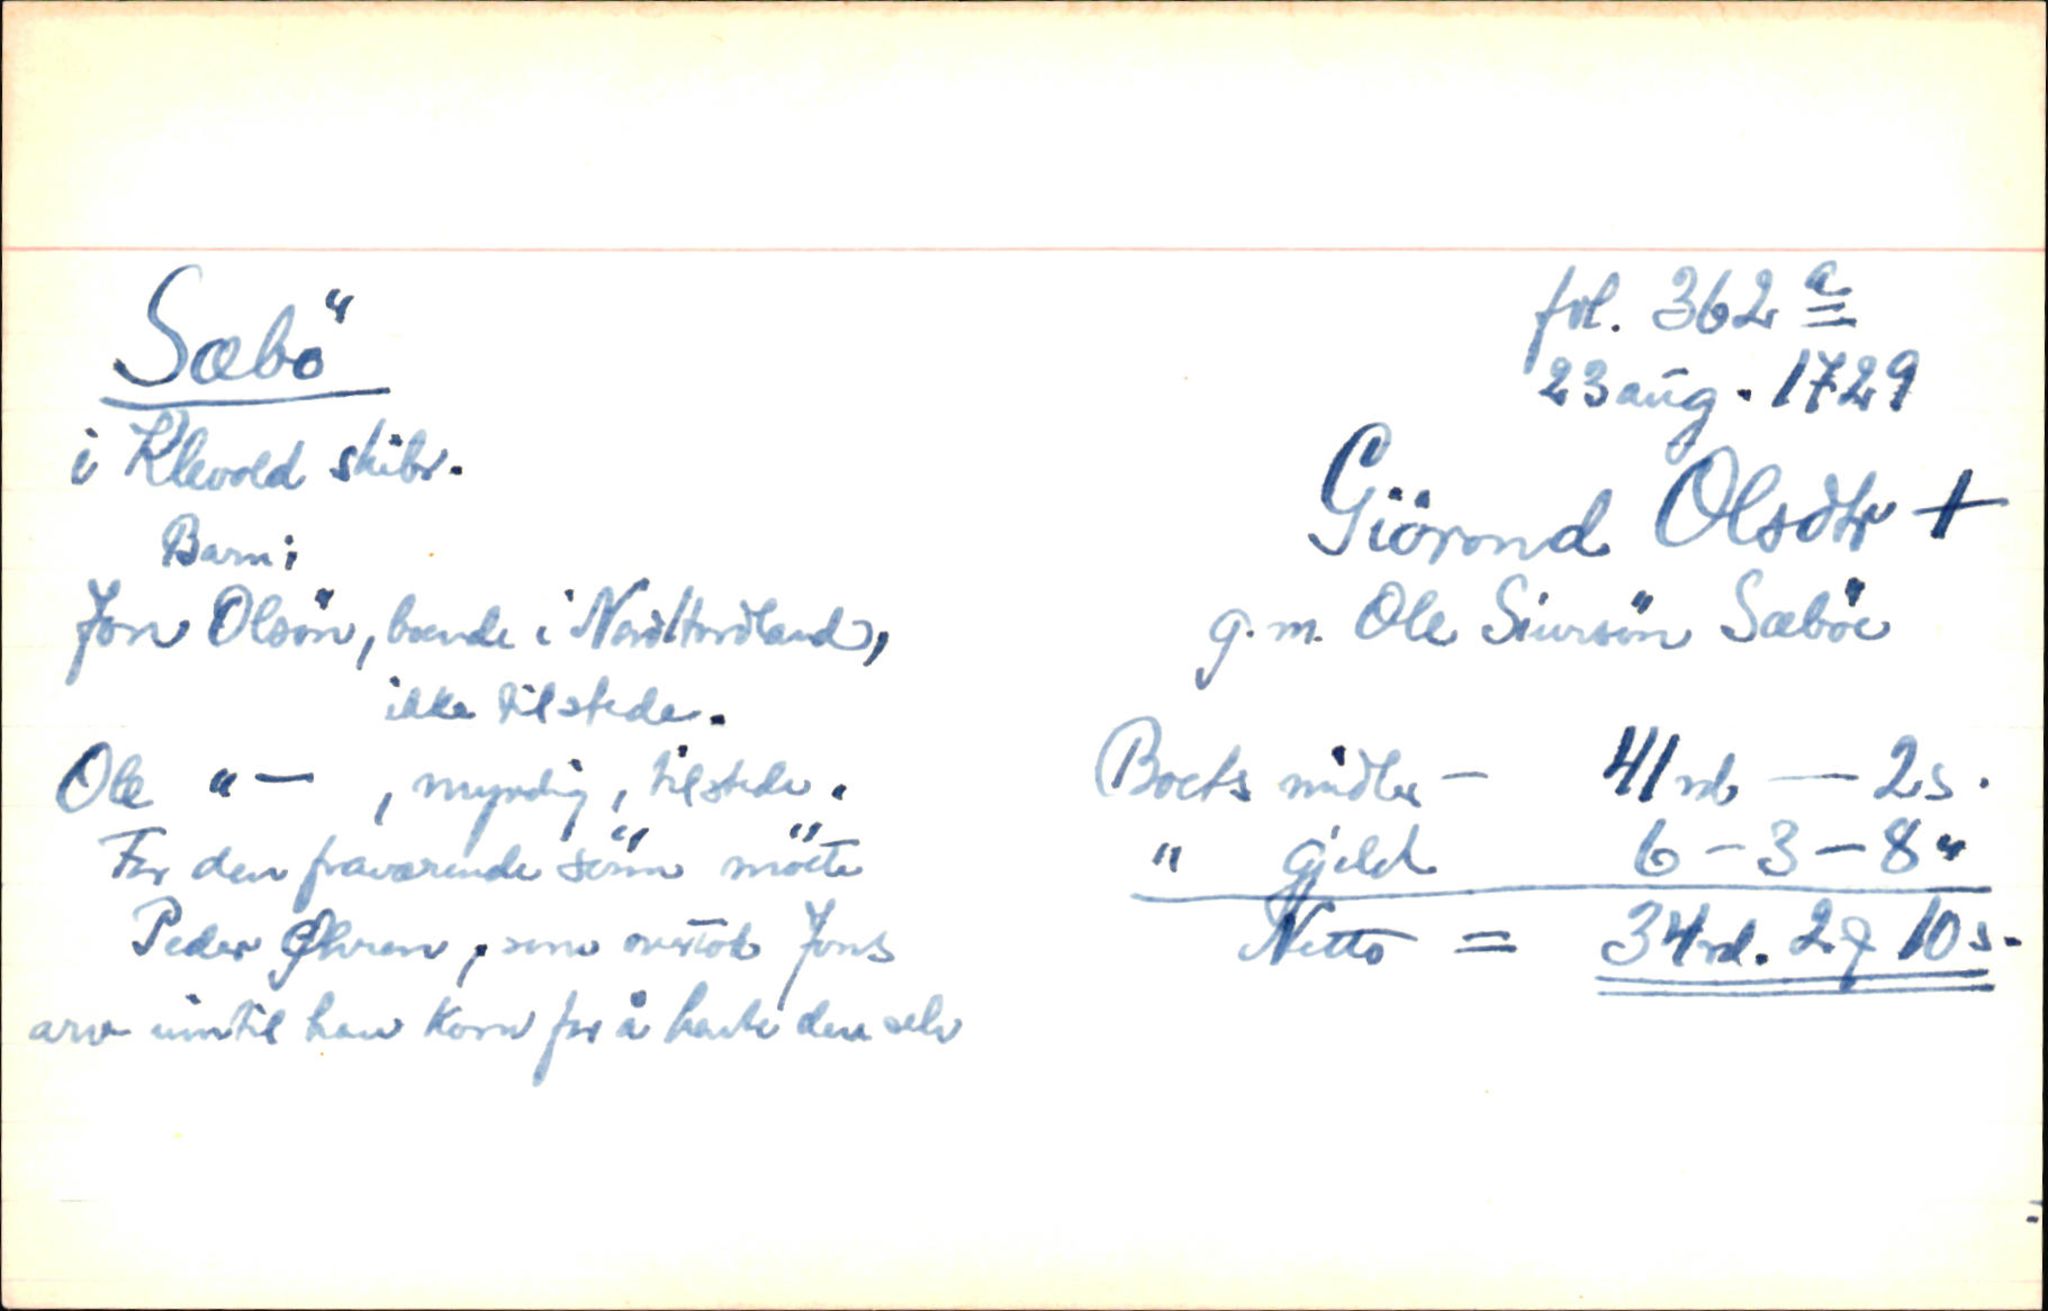 Sæbö
i Klevold skibr.
Barn:
Jon Olsön, boende i Nordhordland,
ikke tilstede.
Ole "— , myndig, tilstede.
For den fraværende sönn mötte
Peder Øhren, som overtok Jons
arv inntil han kom for å hente den selv
fol. 362 a
23 aug. 1729
Giörond Olsdtr +
g. m. Ole Siursön Sæböe
Boets midler — 41 rd — 2 s.
" gjeld 6 — 3 — 8 "
Netto = 34 rd. 2 q 10 s.